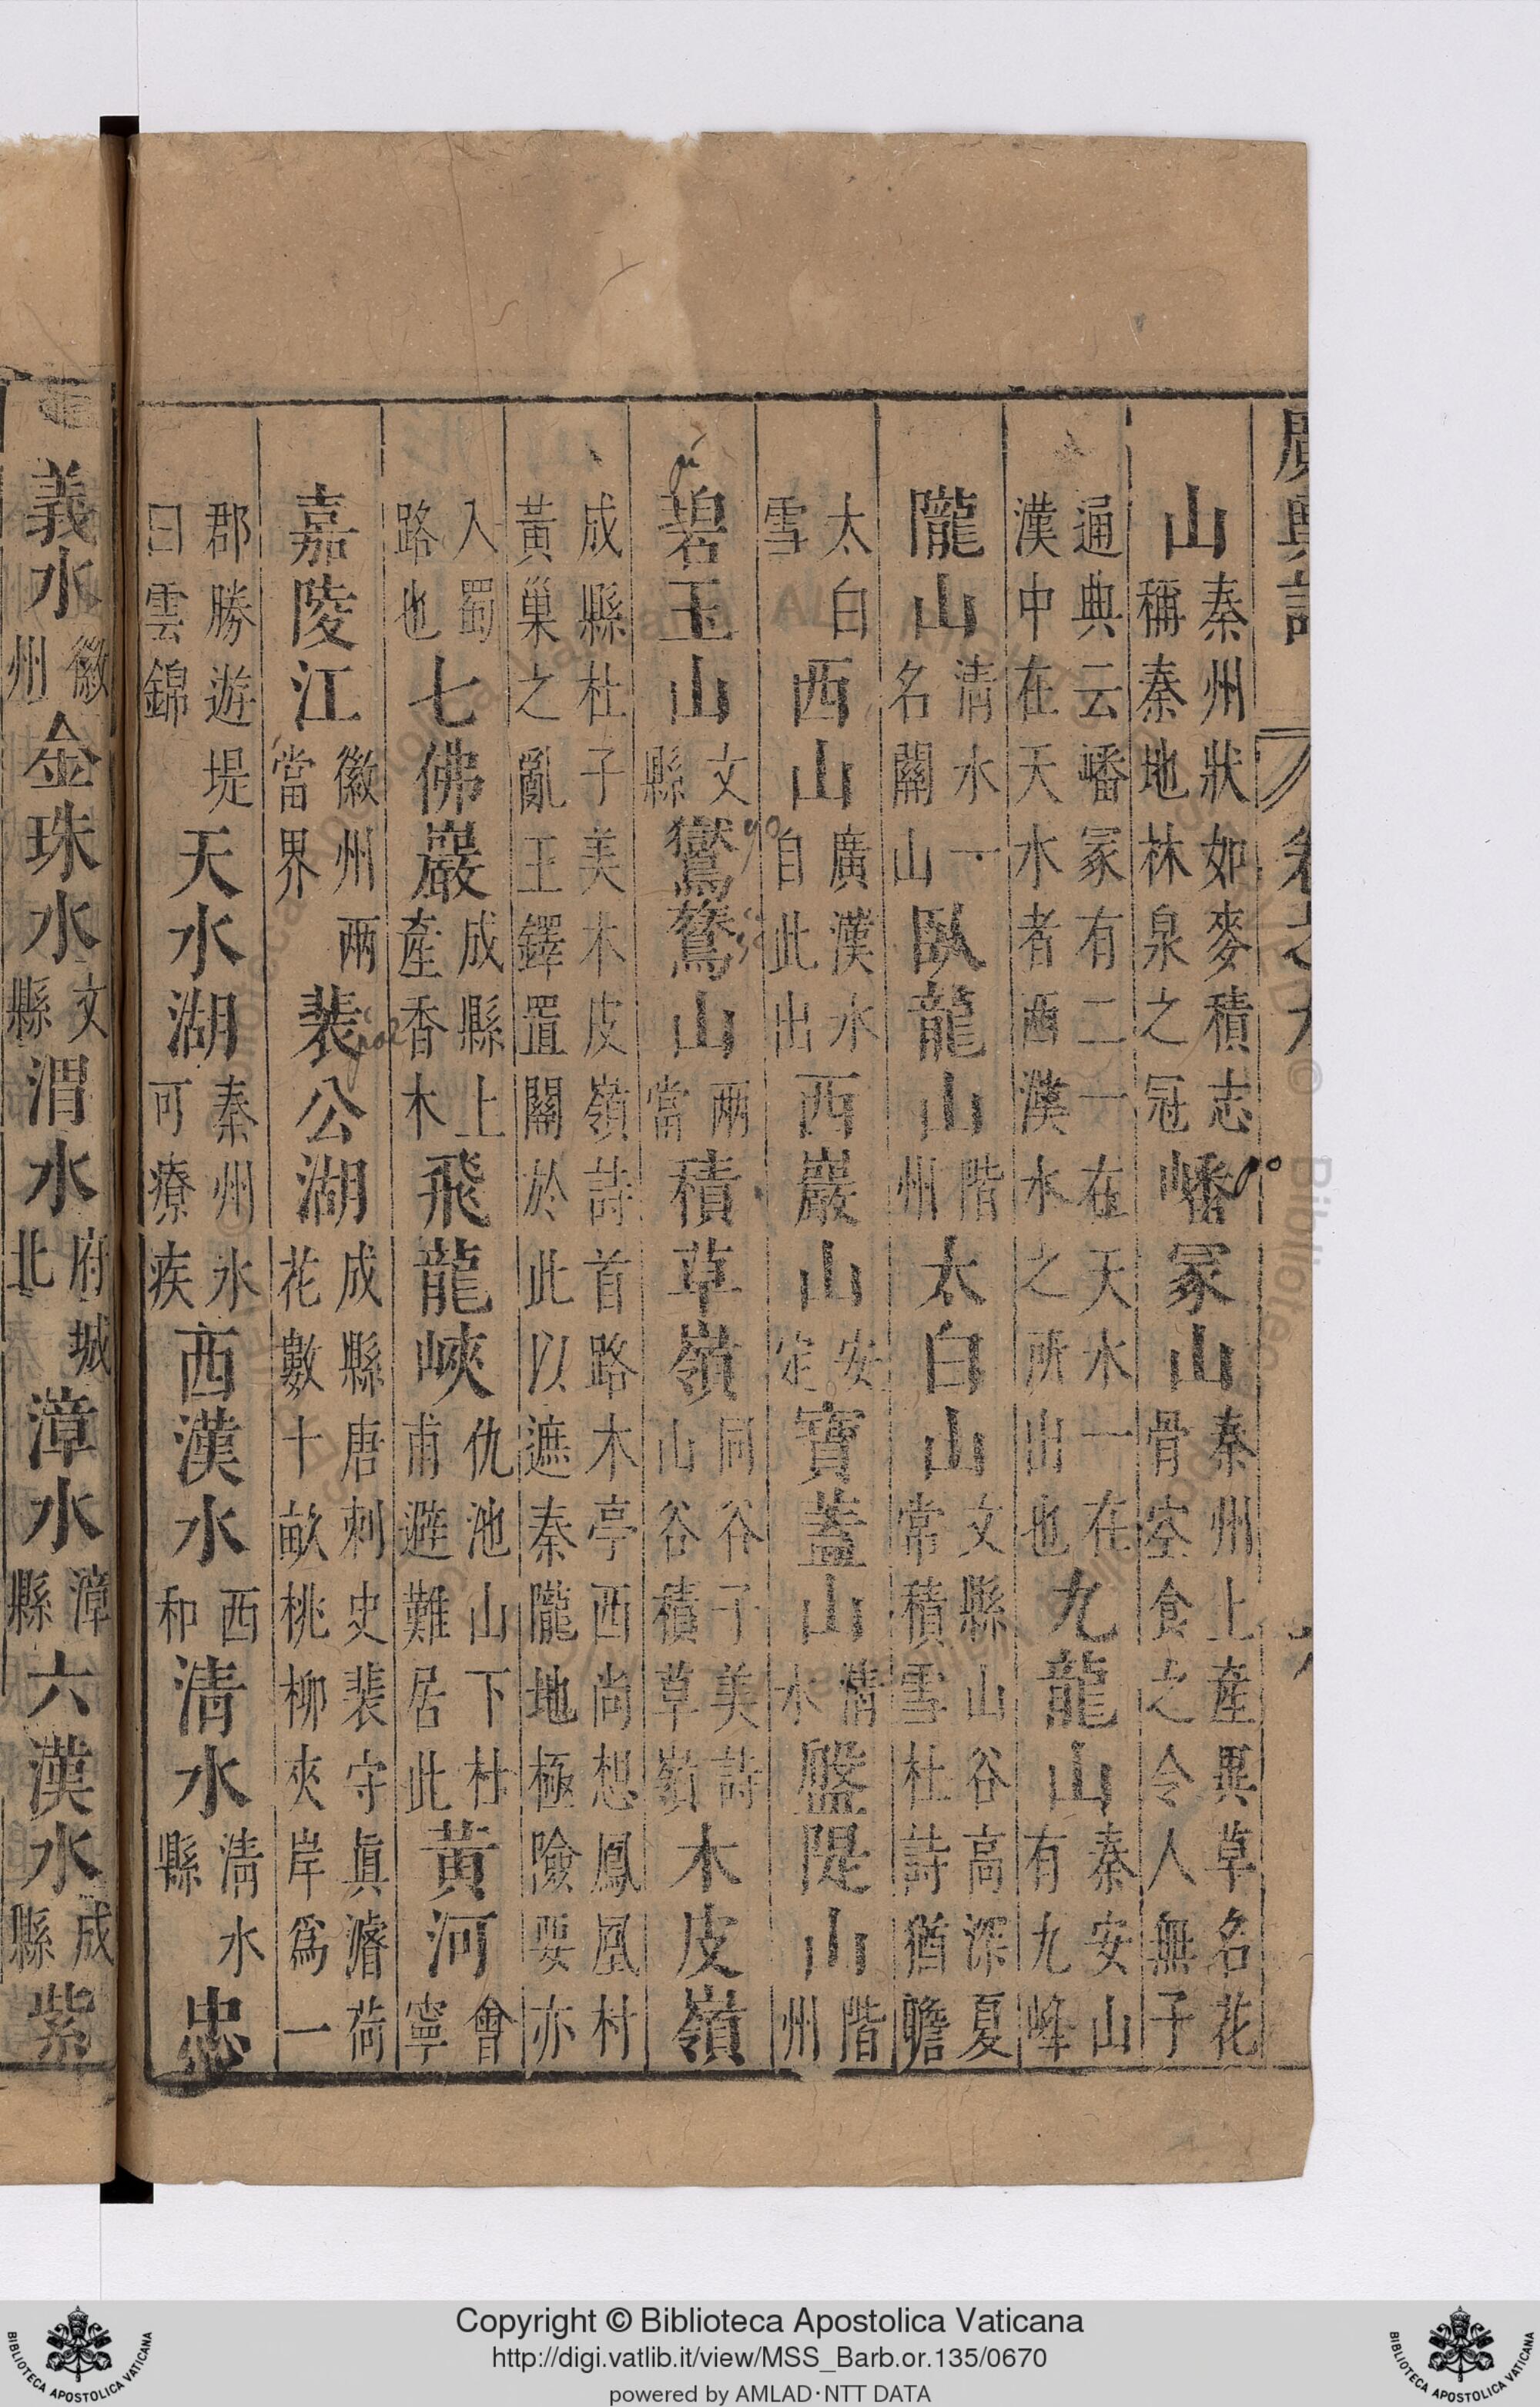 廣輿記 卷之九
山秦州狀如麥積志稱秦地林泉之冠嶓冢山秦州上產異草名花骨容食之令人無子
通典云嶓冢有二一在天水一在漢中在天水者西漢水之所出也九龍山秦安山有九峰
隴山清水一名關山臥龍山階州太白山文縣山谷高深夏常積雪杜詩猶瞻
太白雪西山廣漢水自此出西巖山安定寶蓋山清水盤隄山階州
碧玉山文縣鸑鷟山兩當積草嶺同谷子美詩山谷積草嶺木皮嶺
成縣杜子美木皮嶺詩首路木亭西尚想鳳凰村黃巢之亂王鐸置關於此以遮秦隴地極險要亦
入蜀路也七佛巖成縣上產香木飛龍峽仇池山下杜甫避難居此黃河會寧
嘉陵江徽州兩當界裴公湖成縣唐刺史裴守眞濬荷花數十畝桃柳夾岸爲一
郡勝遊堤曰雲錦天水湖秦州水可療疾西漢水西和清水清水縣忠
義水徽州金珠水文縣渭水府城北漳水漳縣六漢水成縣紫
Copyright © Biblioteca Apostolica Vaticana
http://digi.vatlib.it/view/MSS_Barb.or.135/0670
powered by AMLAD·NTT DATA